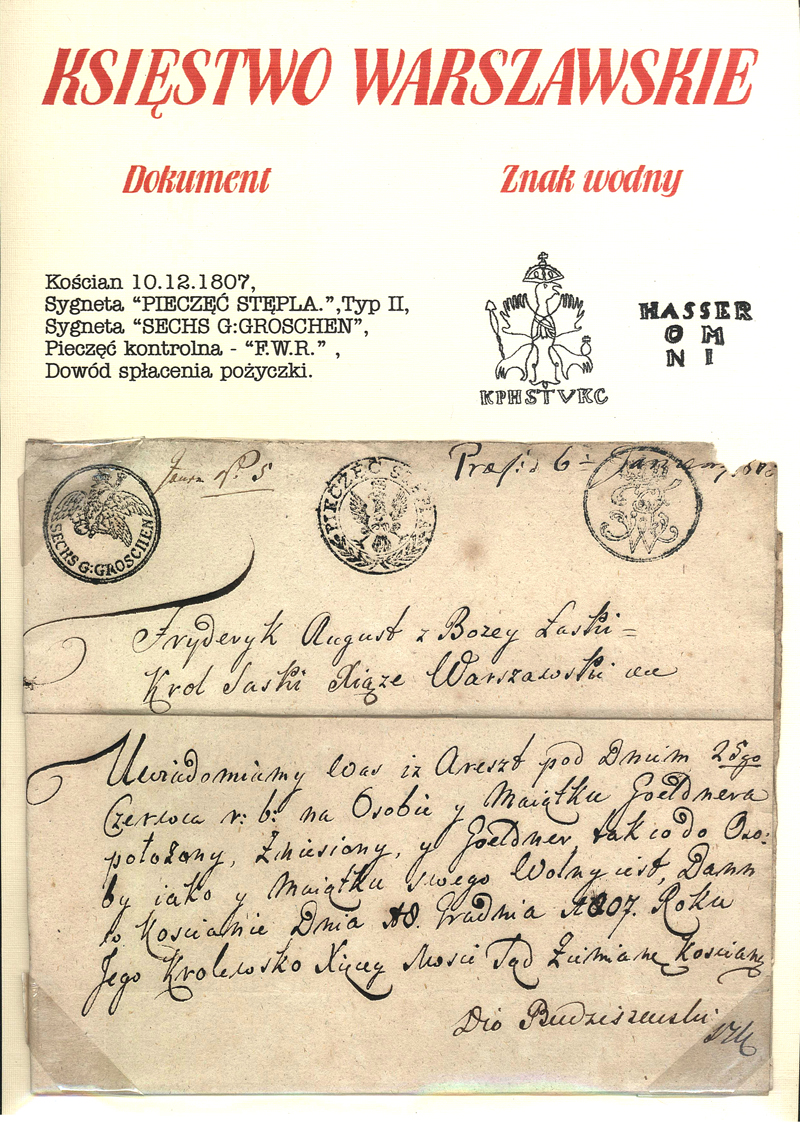 KSIĘSTWO WARSZAWSKIE
Dokument
Znak wodny
Kościan 10.12.1807,
Sygneta “PIECZĘĆ STĘPLA.”,Typ II,
Sygneta “SECHS G:GROSCHEN”,
Pieczęć kontrolna - “F.W.R.” ,
Dowód spłacenia pożyczki.
KPHSTVKC
HASSER
O M
N I
SECHS G:GROSCHEN
PIECZĘĆ STĘPLA
FWR
5
Præs:d 6
Fryderyk August z Bozey Łaski=
Krol Saski Xiąze Warszawski
Uwiadomiamy Was iz Areszt pod Dniem 25go
Czerwca r: b: na Osobie y Maiątku Goeldnera
położony, Zniesiony, y Goeldner, tak do Oso:
by iako y Maiątku swego Wolny iest, Dann
w Koscianie Dnia Grudnia 1807. Roku
Jego Krolewsko Xiącey Mosci Sąd Ziemianę Kosciany
Budziszewski